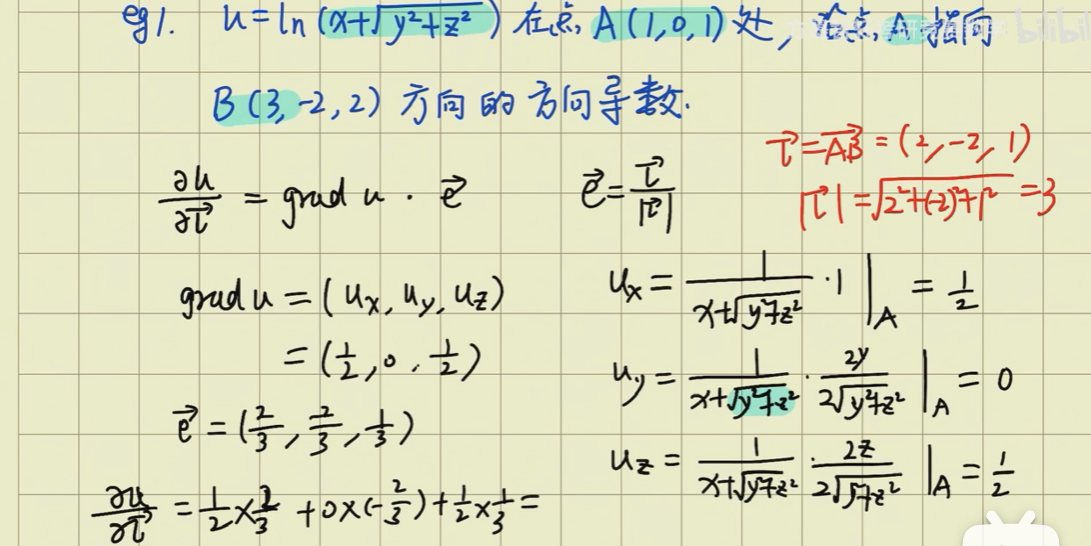 eg1. u = ln(x+√(y²+z²)) 在点 A(1,0,1) 处, 点 A 指向
B(3,-2,2) 方向的方向导数.
τ⃗ = AB⃗ = (2,-2,1)
|τ⃗| = √(2²+(-2)²+1²) = 3
∂u/∂τ⃗ = grad u · e⃗
e⃗ = τ⃗/|τ⃗|
grad u = (uₓ, u_y, u_z)
= (1/2, 0, 1/2)
e⃗ = (2/3, 2/3, 1/3)
∂u/∂τ⃗ = 1/2 × 2/3 + 0×(-2/3) + 1/2 × 1/3 =
uₓ = 1/(x+√(y²+z²)) · 1 |_A = 1/2
u_y = 1/(x+√(y²+z²)) · 2y/(2√(y²+z²)) |_A = 0
u_z = 1/(x+√(y²+z²)) · 2z/(2√(y²+z²)) |_A = 1/2